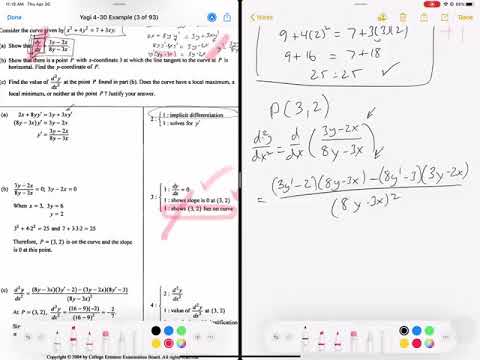 11:15 AM Thu Apr 30
Yagi 4-30 Example (3 of 93)
85%
Consider the curve given by x² + 4y² = 7 + 3xy.
(a) Show that dy/dx = (3y - 2x)/(8y - 3x)
(b) Show that there is a point P with x-coordinate 3 at which the line tangent to the curve at P is
horizontal. Find the y-coordinate of P.
(c) Find the value of d²y/dx² at the point P found in part (b). Does the curve have a local maximum, a
local minimum, or neither at the point P ? Justify your answer.
(a) 2x + 8yy′ = 3y + 3xy′
(8y - 3x)y′ = 3y - 2x
y′ = (3y - 2x)/(8y - 3x)
2 : { 1 : implicit differentiation
1 : solves for y′
(b) (3y - 2x)/(8y - 3x) = 0; 3y - 2x = 0
When x = 3, 3y = 6
y = 2
3² + 4·2² = 25 and 7 + 3·3·2 = 25
Therefore, P = (3, 2) is on the curve and the slope
is 0 at this point.
3 : { 1 : dy/dx = 0
1 : shows slope is 0 at (3, 2)
1 : shows (3, 2) lies on curve
(c) d²y/dx² = ((8y - 3x)(3y′ - 2) - (3y - 2x)(8y′ - 3))/(8y - 3x)²
At P = (3, 2), d²y/dx² = (16 - 9)(-2)/(16 - 9)² = -2/7.
4 : { 2 : d²y/dx²
1 : value of d²y/dx² at (3, 2)
Copyright © 2004 by College Entrance Examination Board. All rights reserved.
9 + 4(2)² = 7 + 3(3)(2)
9 + 16 = 7 + 18
25 = 25 ✓
P(3, 2)
d²y/dx² = d/dx ((3y - 2x)/(8y - 3x))
= ((3y′ - 2)(8y - 3x) - (8y′ - 3)(3y - 2x))/(8y - 3x)²